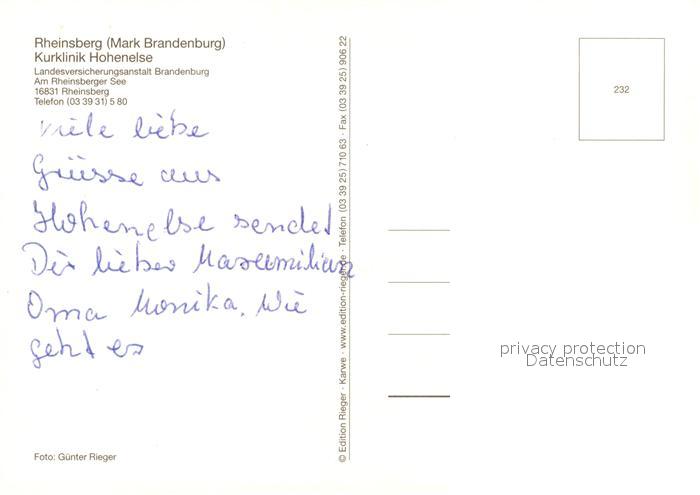 Rheinsberg (Mark Brandenburg)
Kurklinik Hohenelse
Landesversicherungsanstalt Brandenburg
Am Rheinsberger See
16831 Rheinsberg
Telefon (03 39 31) 5 80
viele liebe
Grüsse aus
Hohenelse sendet
Dir lieber Maxemilian
Oma Monika. Wie
geht es
Foto: Günter Rieger
© Edition Rieger · Karwe · www.edition-rieger.de · Telefon (03 39 25) 710 63 · Fax (03 39 25) 906 22
232
privacy protection
Datenschutz